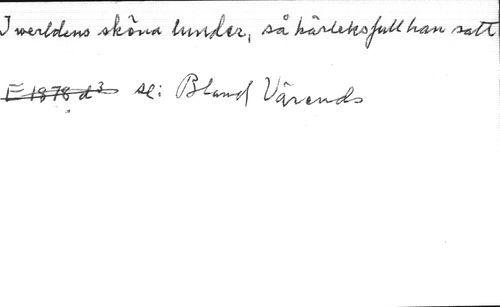 I werldens sköna lunder, så kärleksfull han satt
E 1878 d³ se: Bland Värends